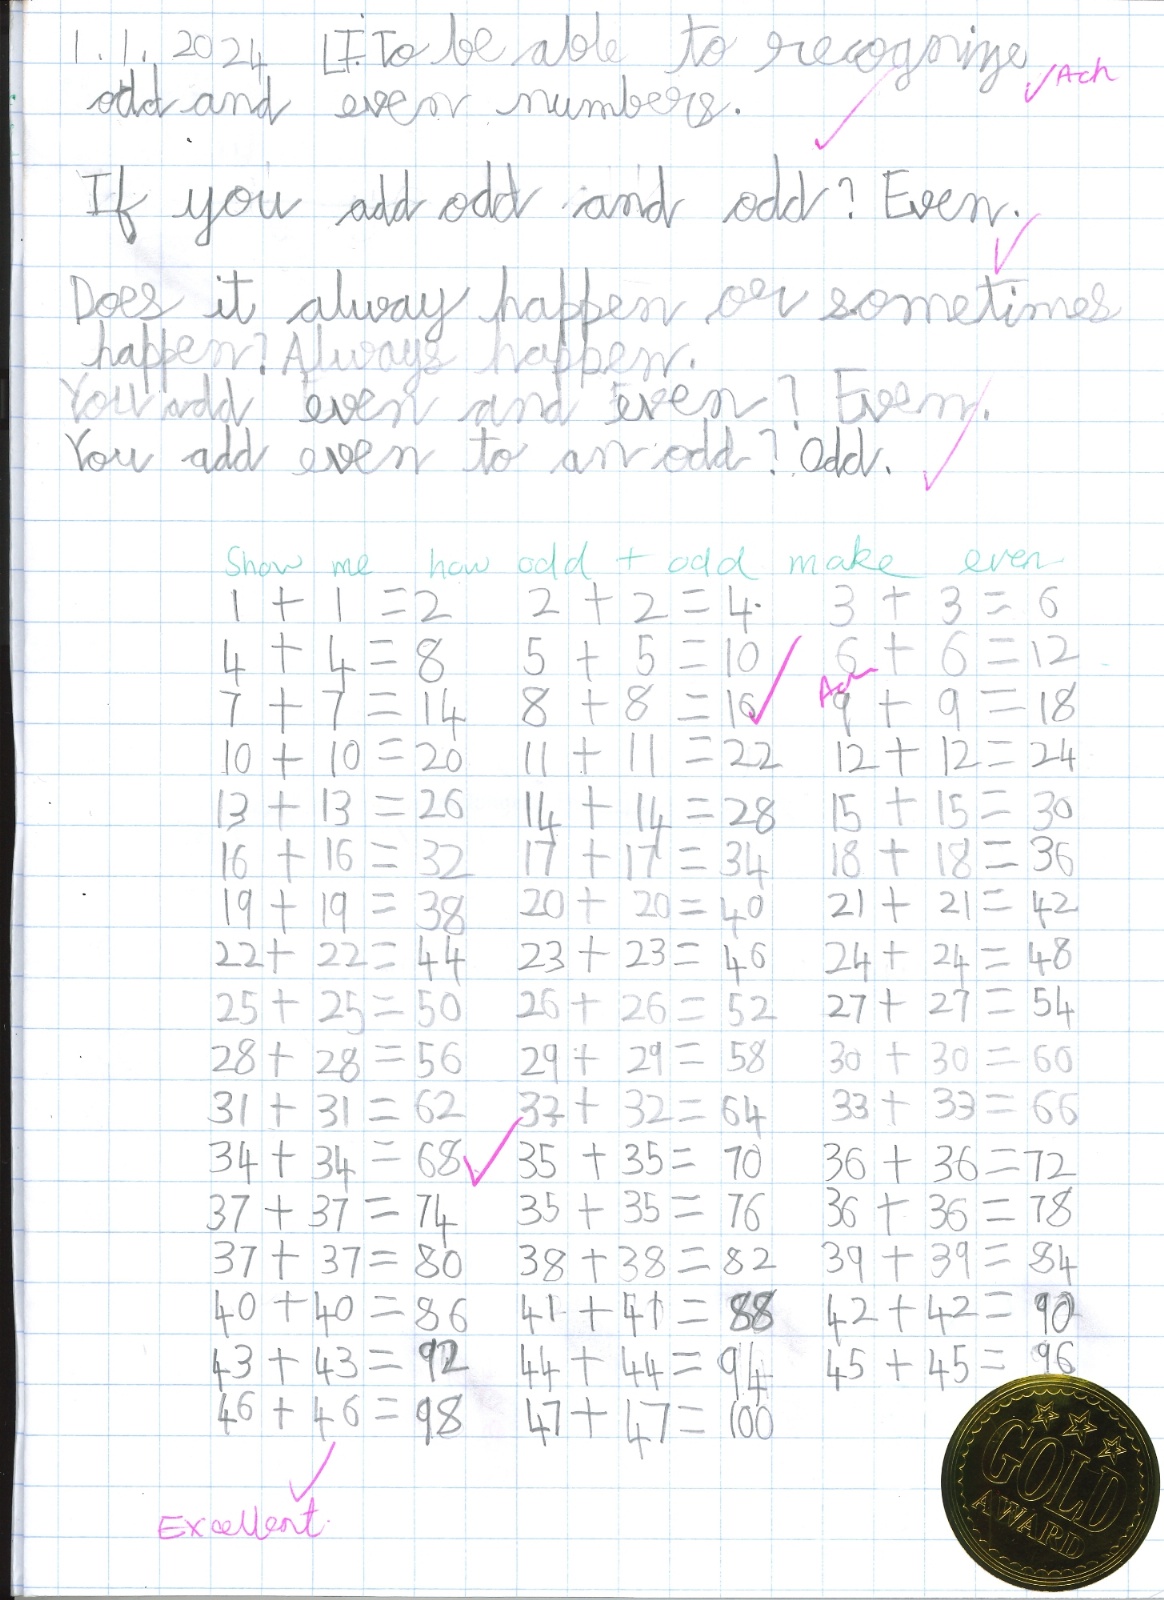 1.1.2024 LI: To be able to recognize ✓Ach
odd and even numbers.
If you add odd and odd? Even.
Does it alway happen or sometimes
happen? Always happen.
You add even and even? Even.
You add even to an odd? Odd.
Show me how odd + odd make even
1 + 1 = 2 2 + 2 = 4 3 + 3 = 6
4 + 4 = 8 5 + 5 = 10 6 + 6 = 12
Ach
7 + 7 = 14 8 + 8 = 16 9 + 9 = 18
10 + 10 = 20 11 + 11 = 22 12 + 12 = 24
13 + 13 = 26 14 + 14 = 28 15 + 15 = 30
16 + 16 = 32 17 + 17 = 34 18 + 18 = 36
19 + 19 = 38 20 + 20 = 40 21 + 21 = 42
22 + 22 = 44 23 + 23 = 46 24 + 24 = 48
25 + 25 = 50 26 + 26 = 52 27 + 27 = 54
28 + 28 = 56 29 + 29 = 58 30 + 30 = 60
31 + 31 = 62 32 + 32 = 64 33 + 33 = 66
34 + 34 = 68 35 + 35 = 70 36 + 36 = 72
37 + 37 = 74 35 + 35 = 76 36 + 36 = 78
37 + 37 = 80 38 + 38 = 82 39 + 39 = 84
40 + 40 = 86 41 + 41 = 88 42 + 42 = 90
43 + 43 = 92 44 + 44 = 94 45 + 45 = 96
46 + 46 = 98 47 + 47 = 100
GOLD
AWARD
Excellent.